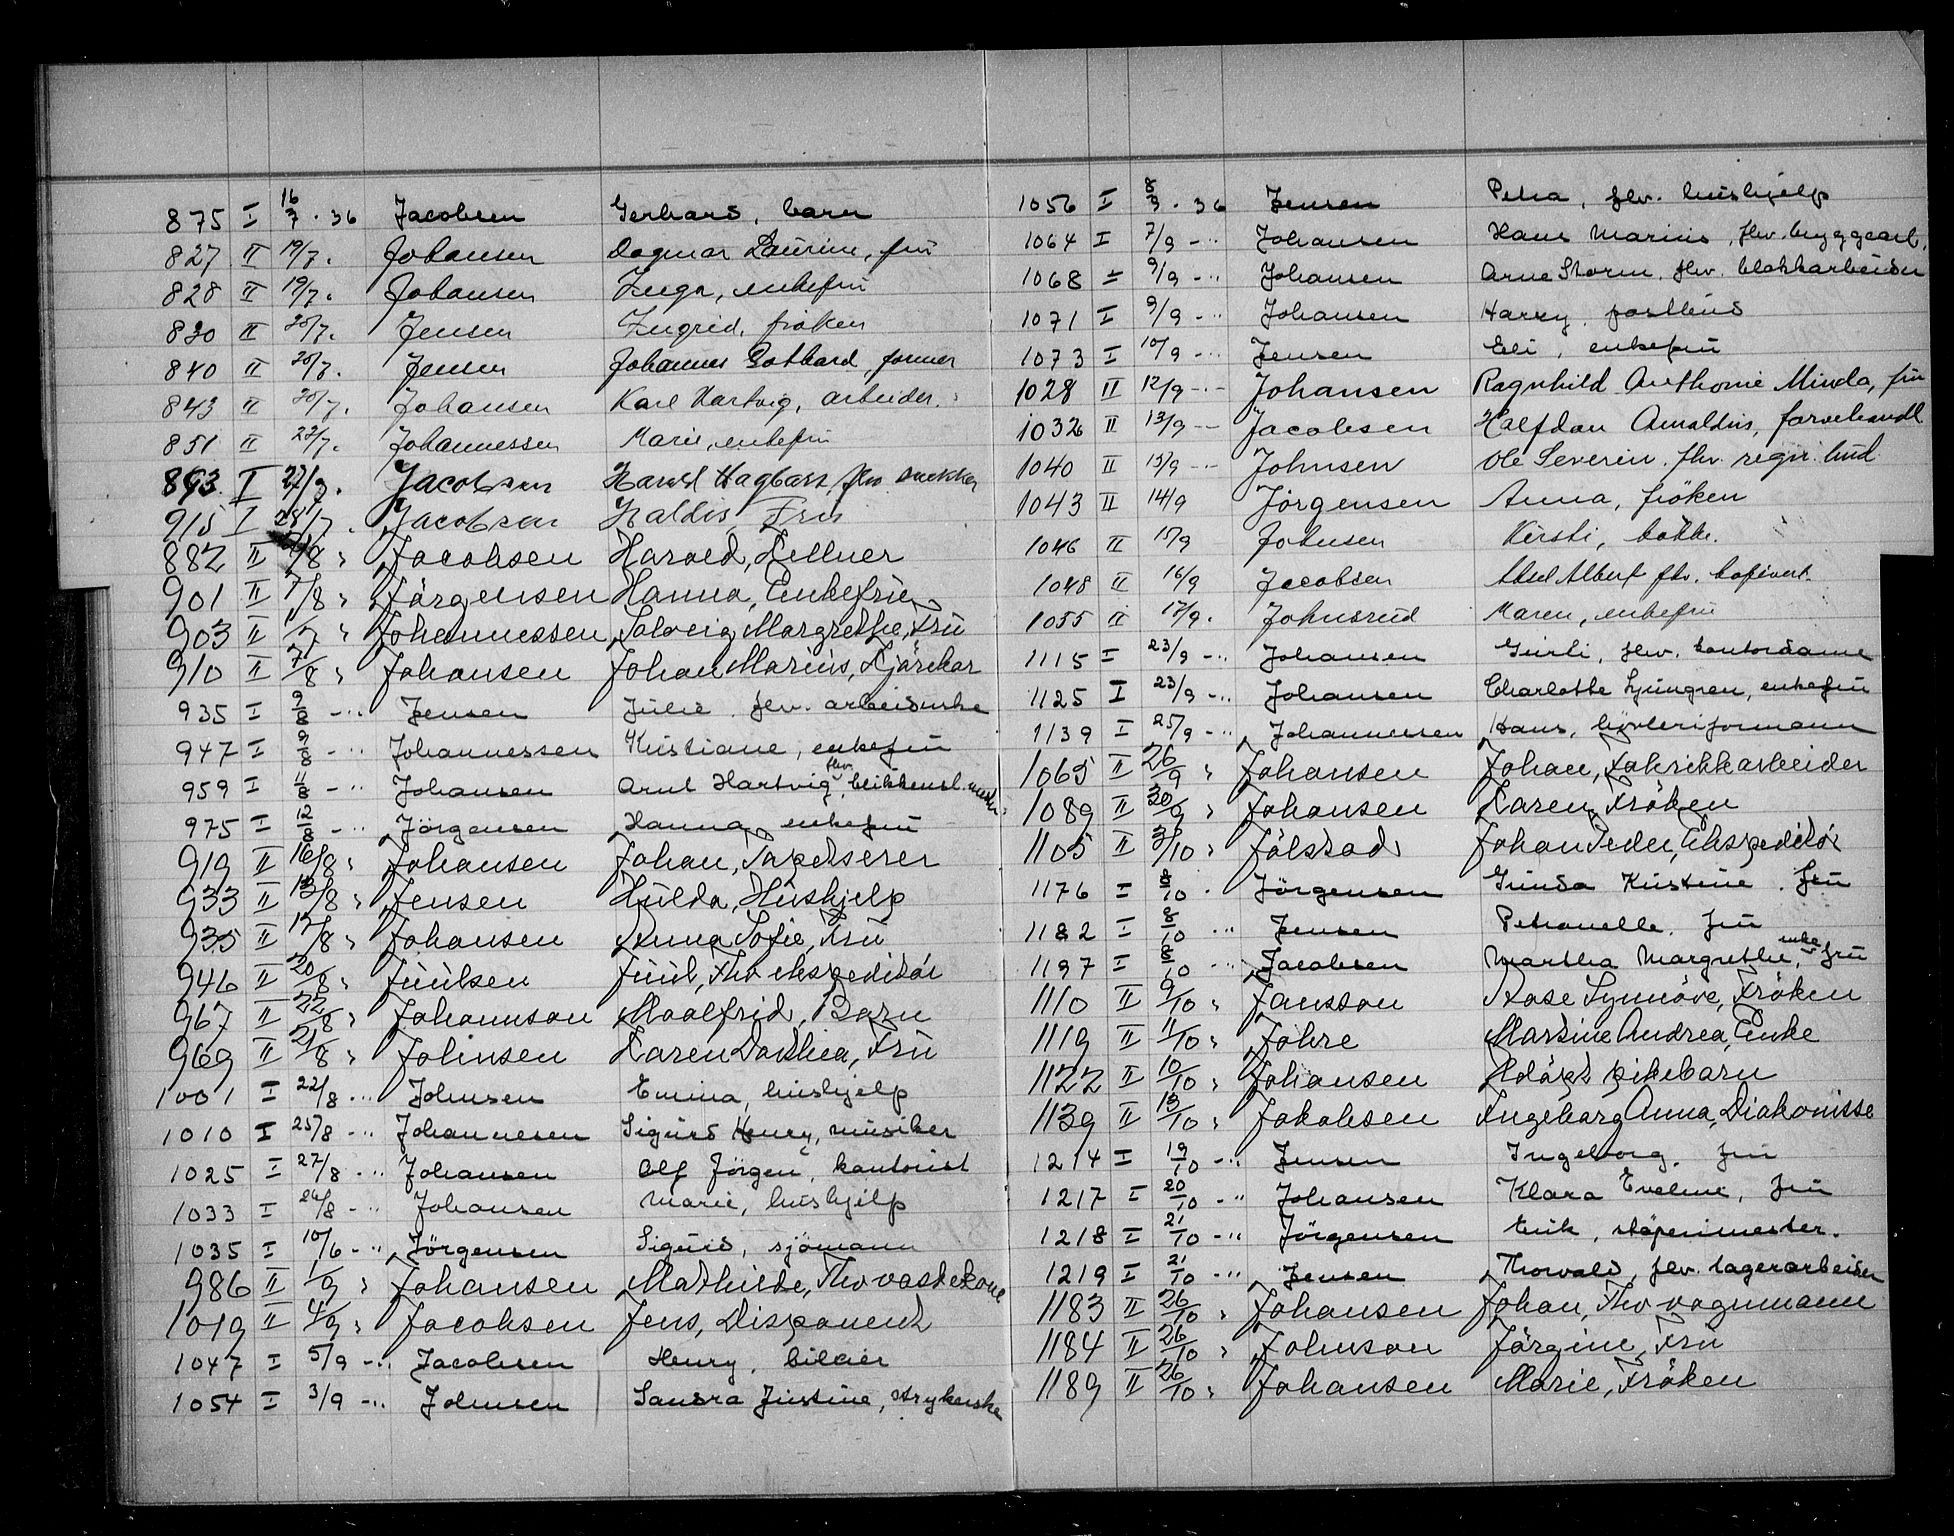 875 I 16/7 . 36 Jacobsen Gerhard, barn
827 II 19/7. Johansen Dagmar Laurine, fru
828 II 19/7. Johansen Inga, enkefru
830 II 20/7. Jensen Ingrid, frøken
840 II 20/7. Jensen Johannes Gothard, former
843 II 20/7. Johansen Karl Hartvig, arbeider.
851 II 22/7. Johannessen Marie, enkefru
893. I 27/7. Jacobsen Harald Hagbart, fhv. snekker
915 I 28/7. Jacobsen Haldis Fru
882 II /8 " Jacobsen Harald, Kellner
901 II 7/8 " Jörgensen Hanna, Enkefru
903 II " Johannessen Solveig Margrethe, Fru
910 II 7/8 " Johansen Johan Marius, Kjörekar
935 I 9/8 - " Jensen Julie, fhv. arbeiderske
947 I 9/8 - " Johannessen Kristiane, enkefru
959 I 11/8 - " Johansen Arnt Hartvig, fhv. blikkensl. mester
975 I 12/8 - " Jörgensen Hanna, enkefru
919 II 16/8 " Johansen Johan, Tapetserer
933 II 13/8 " Jensen Hulda, Hushjelp
935 II 17/8 " Johansen Anna Sofie, Fru
946 II 20/8 " Juulsen Juul, Fhv ekspeditör
967 II 22/8 " Johannson Maalfrid, Barn
969 II 21/8 " Johnsen Karen Dorthea, Fru
1001 I 22/8 - " Johnsen Emma, hushjelp
1010 I 25/8 - " Johannesen Sigurd Henry, musiker
1025 I 27/8 - " Johansen Olf Jörgen, kontorist
1033 I 26/8 - " Johansen Marie, hushjelp
1035 I 10/6 - " Jörgensen Sigurd, sjömann
986 II 1/9 " Johansen Mathilde, Fhv vaskekone
1019 II 4/9 " Jacobsen Jens, Disponent
1047 I 5/9 - " Jacobsen Henry, bileier
1054 I 3/9 - " Johnsen Sandra Justine, strykerske
1056 I 8/9 . 36 Jensen Petra, fhv. hushjelp
1064 I 7/9 - " Johansen Hans Marius, fhv. bryggearb.
1068 I 9/9 - " Johansen Arne Storm, fhv. blokkarbeider
1071 I 9/9 - " Johansen Harry, postbud
1073 I 10/9 - " Jensen Eli, enkefru
1028 II 12/9 - " Johansen Ragnhild Anthonie Minda, fru
1032 II 13/9 - Jacobsen Halfdan Arnoldus, farvehandl
1040 II 15/9 - " Johnsen Ole Severin, fhv. regn. bud
1043 II 14/9 Jörgensen Anna, fröken
1046 II 15/9 Johnsen Kirsti, kokke.
1048 II 16/9 Jacobsen Axel Albert fhv. kafévert.
1055 II 17/9. Johnsrud Maren, enkefru
1115 I 23/9 - " Johansen Gurli, fhv. kontordame
1125 I 23/9 - " Johansen Charlotte Ljungren, enkefru
1139 I 25/9 - " Johannessen Hans, hövleriformann
1065 II 26/9 " Johansen Johan, Fabrikkarbeider
1089 II 30/9 " Johansen Karen, Fröken
1105 II 3/10 " Jölstad Johan Peder, Ekspeditör
1176 I 8/10 . Jörgensen Gunda Kristine, fru
1182 I 8/10 " Jensen Petronelle, fru
1197 I 8/10 " Jacobsen Martha Margrethe, enkefru
1110 II 9/10 " Jansson Aase Synnöve, Fröken
1119 II 11/10 " Johre Martine Andrea, Enke
1122 II 10/10 " Johansen Udöpt pikebarn
1139 II 13/10 " Jakobsen Ingeborg Anna, Diakonisse
1214 I 19/10 - " Jensen Ingeborg, fru
1217 I 20/10 - " Johansen Klara Eveline, fru
1218 I 21/10 - " Jörgensen Erik, stöperimester.
1219 I 21/10 - " Jensen Thorvald, fhv. lagerarbeider
1183 II 26/10 " Johansen Johan, Fhv vognmann
1184 II 26/10 " Johnson Jörgine, Fru
1189 II 26/10 " Johansen Marie, Fröken